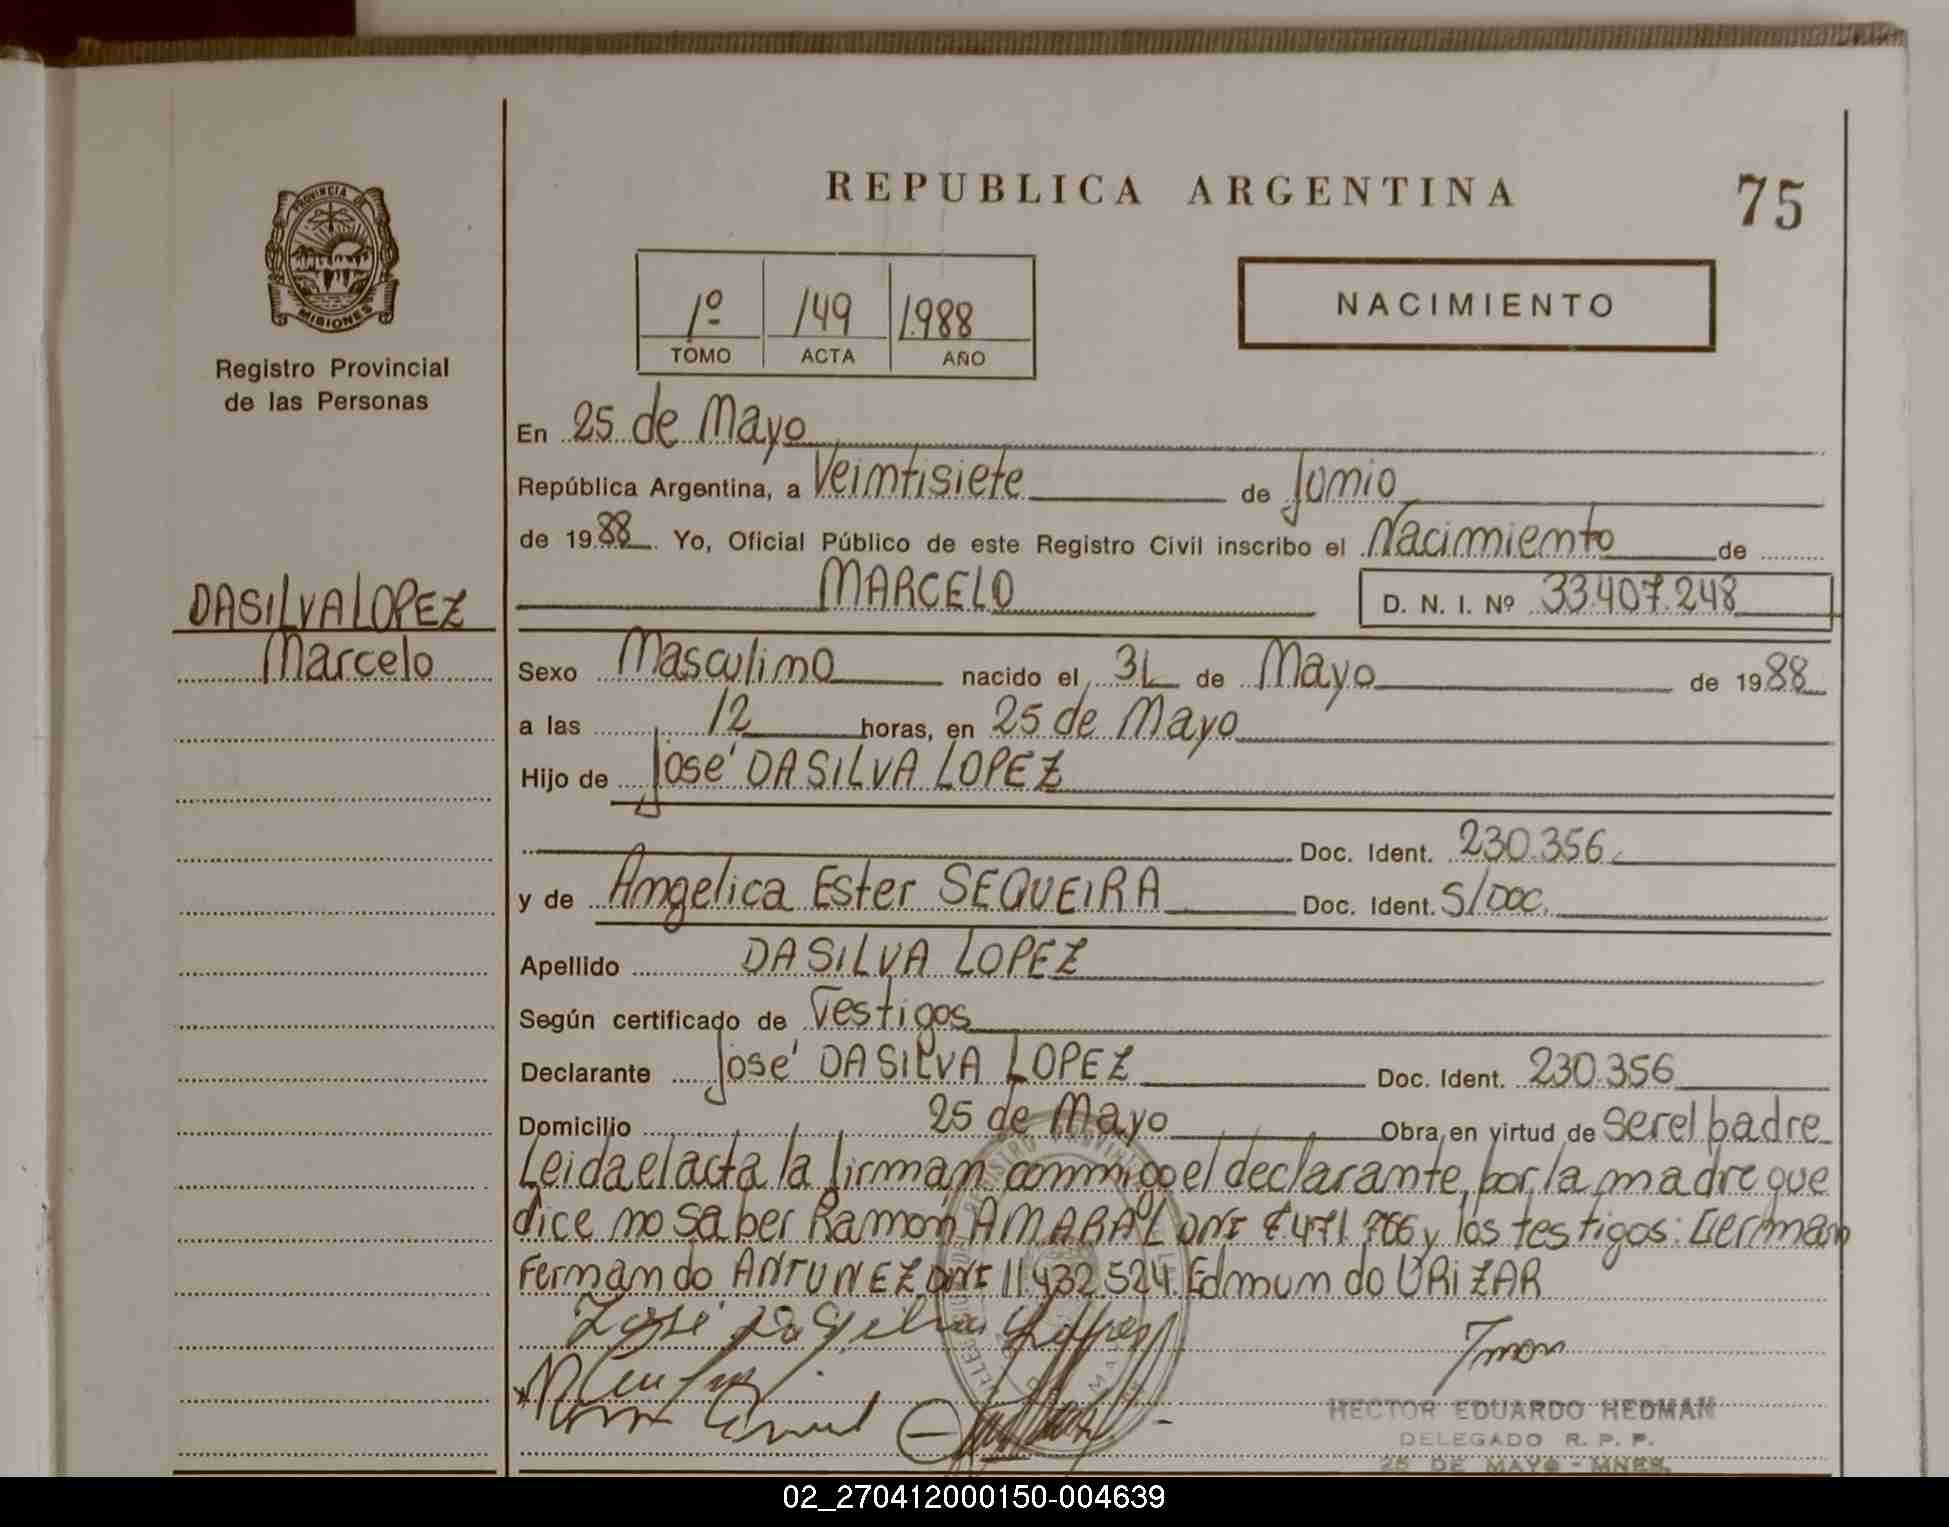 REPUBLICA ARGENTINA
75
PROVINCIA DE
MISIONES
Registro Provincial
de las Personas
1º 149 1988
TOMO ACTA AÑO
NACIMIENTO
En 25 de Mayo
República Argentina, a Veintisiete de Junio
de 1988. Yo, Oficial Público de este Registro Civil inscribo el Nacimiento de
MARCELO D. N. I. Nº 33.407.248
DASILVA LOPEZ
Marcelo
Sexo Masculino nacido el 31 de Mayo de 1988
a las 12 horas, en 25 de Mayo
Hijo de José DASILVA LOPEZ
Doc. Ident. 230.356
y de Angelica Ester SEQUEIRA Doc. Ident. S/DOC.
Apellido DASILVA LOPEZ
Según certificado de Testigos
Declarante José DASILVA LOPEZ Doc. Ident. 230.356
Domicilio 25 de Mayo Obra en virtud de ser el padre
Leida el acta la firman conmigo el declarante, por la madre que
dice no saber Ramon AMARAL DNI 471 y los testigos: German
Fernando ANTUNEZ DNI 11.432.524. Edmundo URIZAR
HECTOR EDUARDO HEDMAN
DELEGADO R. P. P.
25 DE MAYO - MNES.
02_270412000150-004639